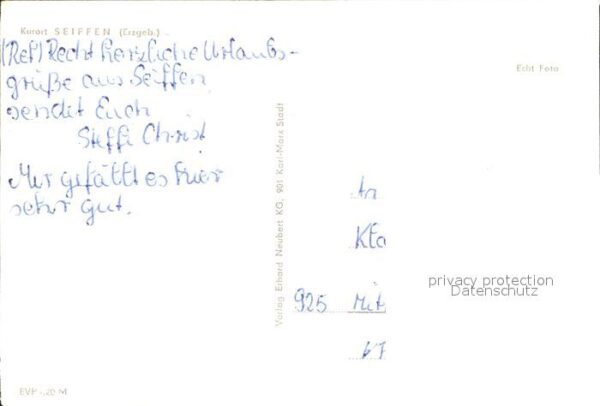 Kurort SEIFFEN (Erzgeb.)
Recht herzliche Urlaubs-
grüße aus Seiffen
sendet Euch
Steffi Christ
Mir gefällt es hier
sehr gut.
Echt Foto
Verlag Erhard Neubert KG, 901 Karl-Marx-Stadt
An
925 Mit
privacy protection
Datenschutz
EVP -,20 M